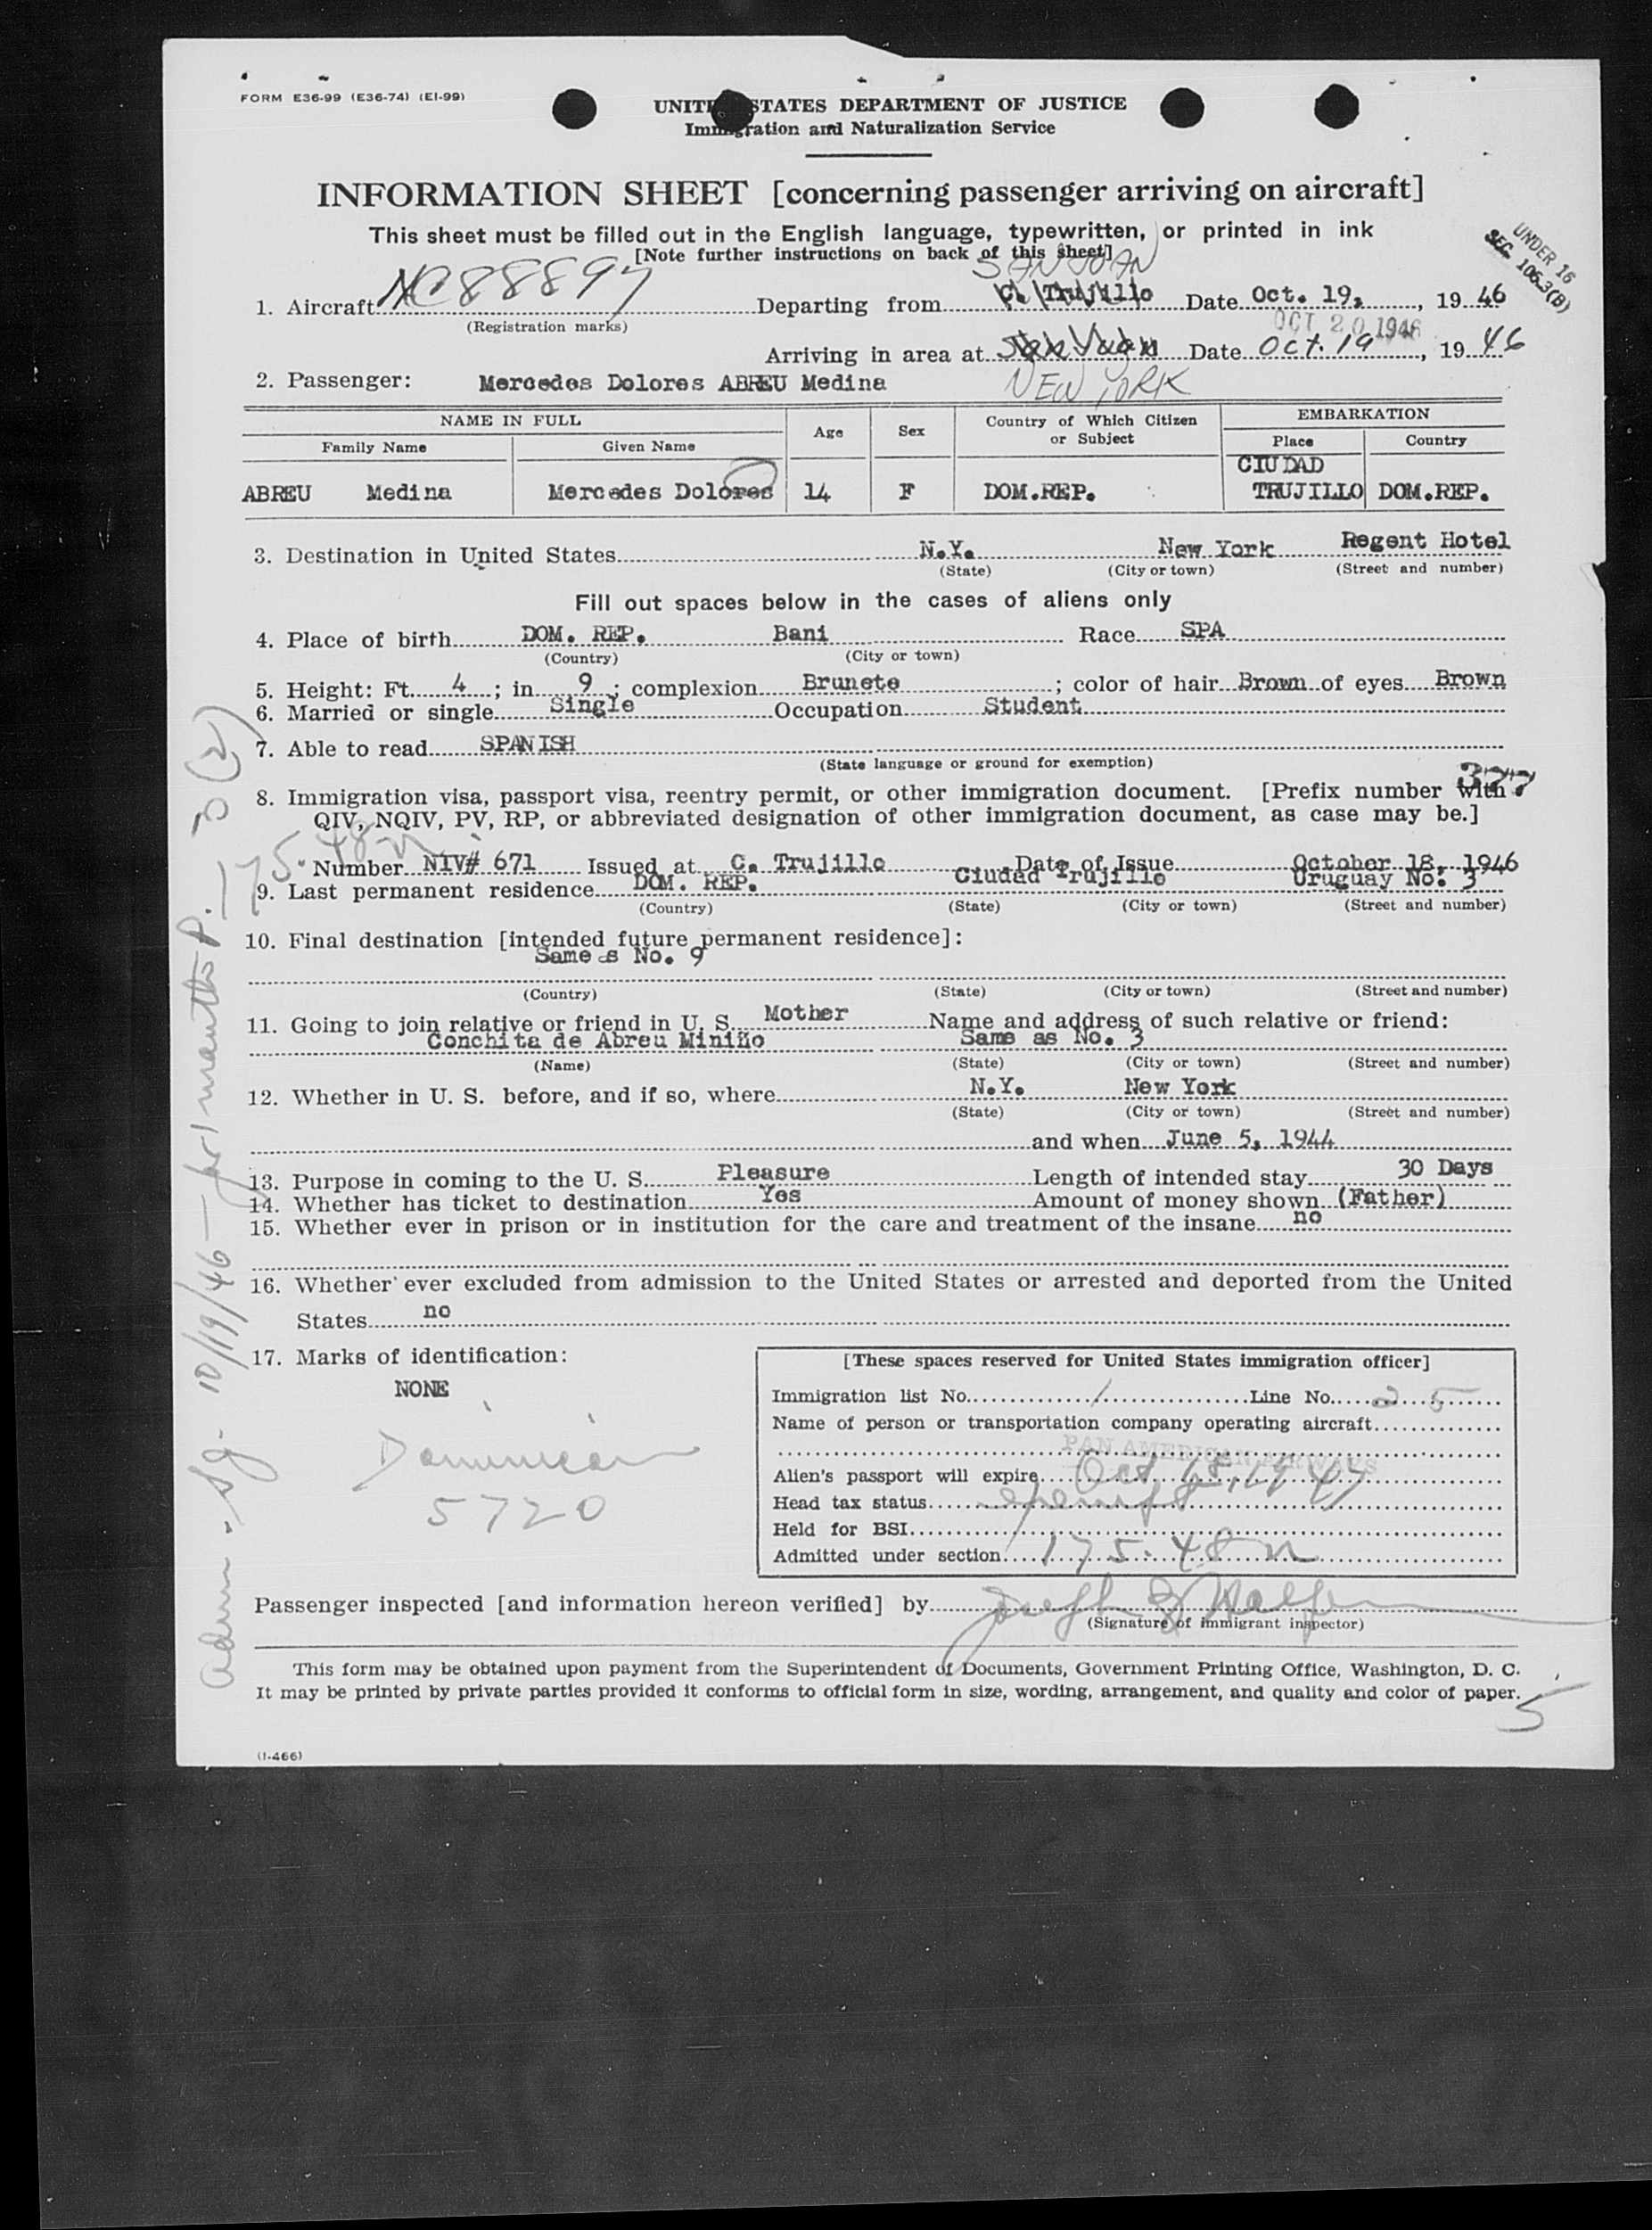 FORM E36-99 (E36-74) (EI-99)
UNITED STATES DEPARTMENT OF JUSTICE
Immigration and Naturalization Service
INFORMATION SHEET [concerning passenger arriving on aircraft]
This sheet must be filled out in the English language, typewritten, or printed in ink
[Note further instructions on back of this sheet]
UNDER 16
SEC. 106-3(B)
SAN JUAN
1. Aircraft NC88897 Departing from C. Trujillo Date Oct. 19, 1946
(Registration marks)
OCT 20 1946
Arriving in area at San Juan Date Oct. 19, 1946
2. Passenger: Mercedes Dolores ABREU Medina NEW YORK
NAME IN FULL Age Sex Country of Which Citizen or Subject EMBARKATION
Family Name Given Name Place Country
CIUDAD
ABREU Medina Mercedes Dolores 14 F DOM.REP. TRUJILLO DOM.REP.
3. Destination in United States N.Y. New York Regent Hotel
(State) (City or town) (Street and number)
Fill out spaces below in the cases of aliens only
4. Place of birth DOM. REP. Bani Race SPA
(Country) (City or town)
5. Height: Ft. 4; in. 9; complexion Brunete; color of hair Brown of eyes Brown
6. Married or single Single Occupation Student
7. Able to read SPANISH
(State language or ground for exemption)
377
8. Immigration visa, passport visa, reentry permit, or other immigration document. [Prefix number with
QIV, NQIV, PV, RP, or abbreviated designation of other immigration document, as case may be.]
Number NIV# 671 Issued at C. Trujillo Date of Issue October 18, 1946
9. Last permanent residence DOM. REP. Ciudad Trujillo Uruguay No. 3
(Country) (State) (City or town) (Street and number)
10. Final destination [intended future permanent residence]:
Same s No. 9
(Country) (State) (City or town) (Street and number)
11. Going to join relative or friend in U. S. Mother Name and address of such relative or friend:
Conchita de Abreu Miniño Same as No. 3
(Name) (State) (City or town) (Street and number)
12. Whether in U. S. before, and if so, where N.Y. New York
(State) (City or town) (Street and number)
and when June 5, 1944
13. Purpose in coming to the U. S. Pleasure Length of intended stay 30 Days
14. Whether has ticket to destination Yes Amount of money shown (Father)
15. Whether ever in prison or in institution for the care and treatment of the insane no
16. Whether ever excluded from admission to the United States or arrested and deported from the United
States no
17. Marks of identification:
NONE
Dominican
5720
[These spaces reserved for United States immigration officer]
Immigration list No. 1 Line No. 25
Name of person or transportation company operating aircraft
PAN AMERICAN AIRWAYS
Alien's passport will expire Oct 18, 1947
Head tax status exempt
Held for BSI
Admitted under section 175.48n
Passenger inspected [and information hereon verified] by Joseph
(Signature of immigrant inspector)
This form may be obtained upon payment from the Superintendent of Documents, Government Printing Office, Washington, D. C.
It may be printed by private parties provided it conforms to official form in size, wording, arrangement, and quality and color of paper.
5
(I-466)
Adm. Sg. 10/19/46 — for 1 month P. 175.48n 3(2)